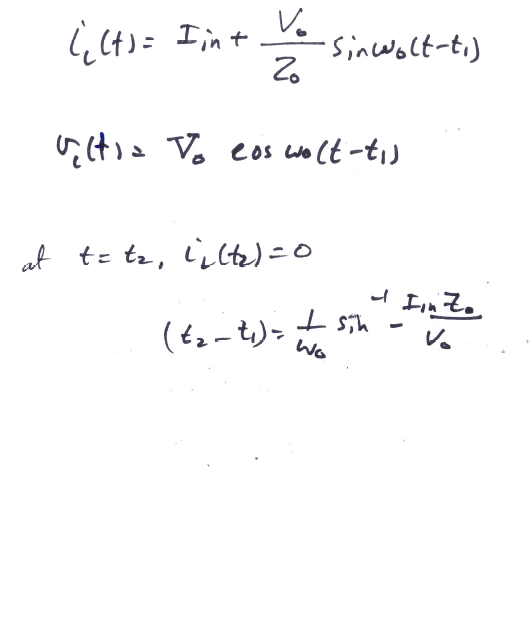 i_L(t) = I_in + V_o/Z_o sin ω_o(t-t_1)
v_c(t) = V_o cos ω_o(t-t_1)
at t = t_2, i_L(t_2) = 0
(t_2 - t_1) = 1/ω_o sin^-1 - I_in Z_o/V_o